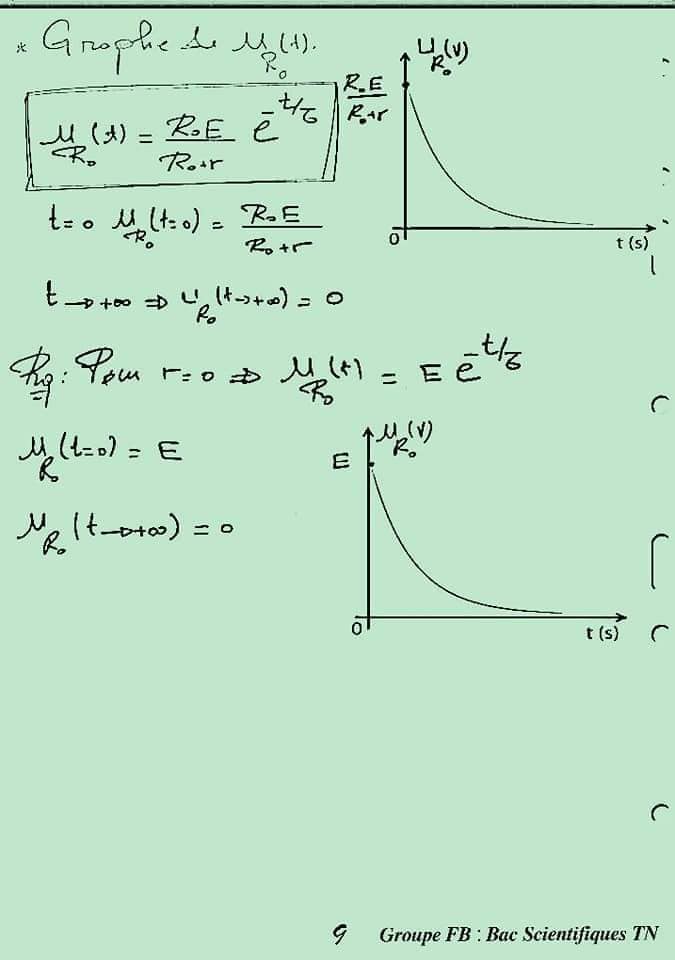 * Graphe de u_R₀(t).
u_R₀(t) = R₀E/(R₀+r) e^(-t/τ)
u_R₀(V)
R₀E/(R₀+r)
0
t (s)
t=0 u_R₀(t=0) = R₀E/(R₀+r)
t→+∞ ⇒ u_R₀(t→+∞) = 0
Rq: Pour r=0 ⇒ u_R₀(t) = E e^(-t/τ)
u_R₀(t=0) = E
u_R₀(t→+∞) = 0
u_R₀(V)
E
0
t (s)
9 Groupe FB : Bac Scientifiques TN